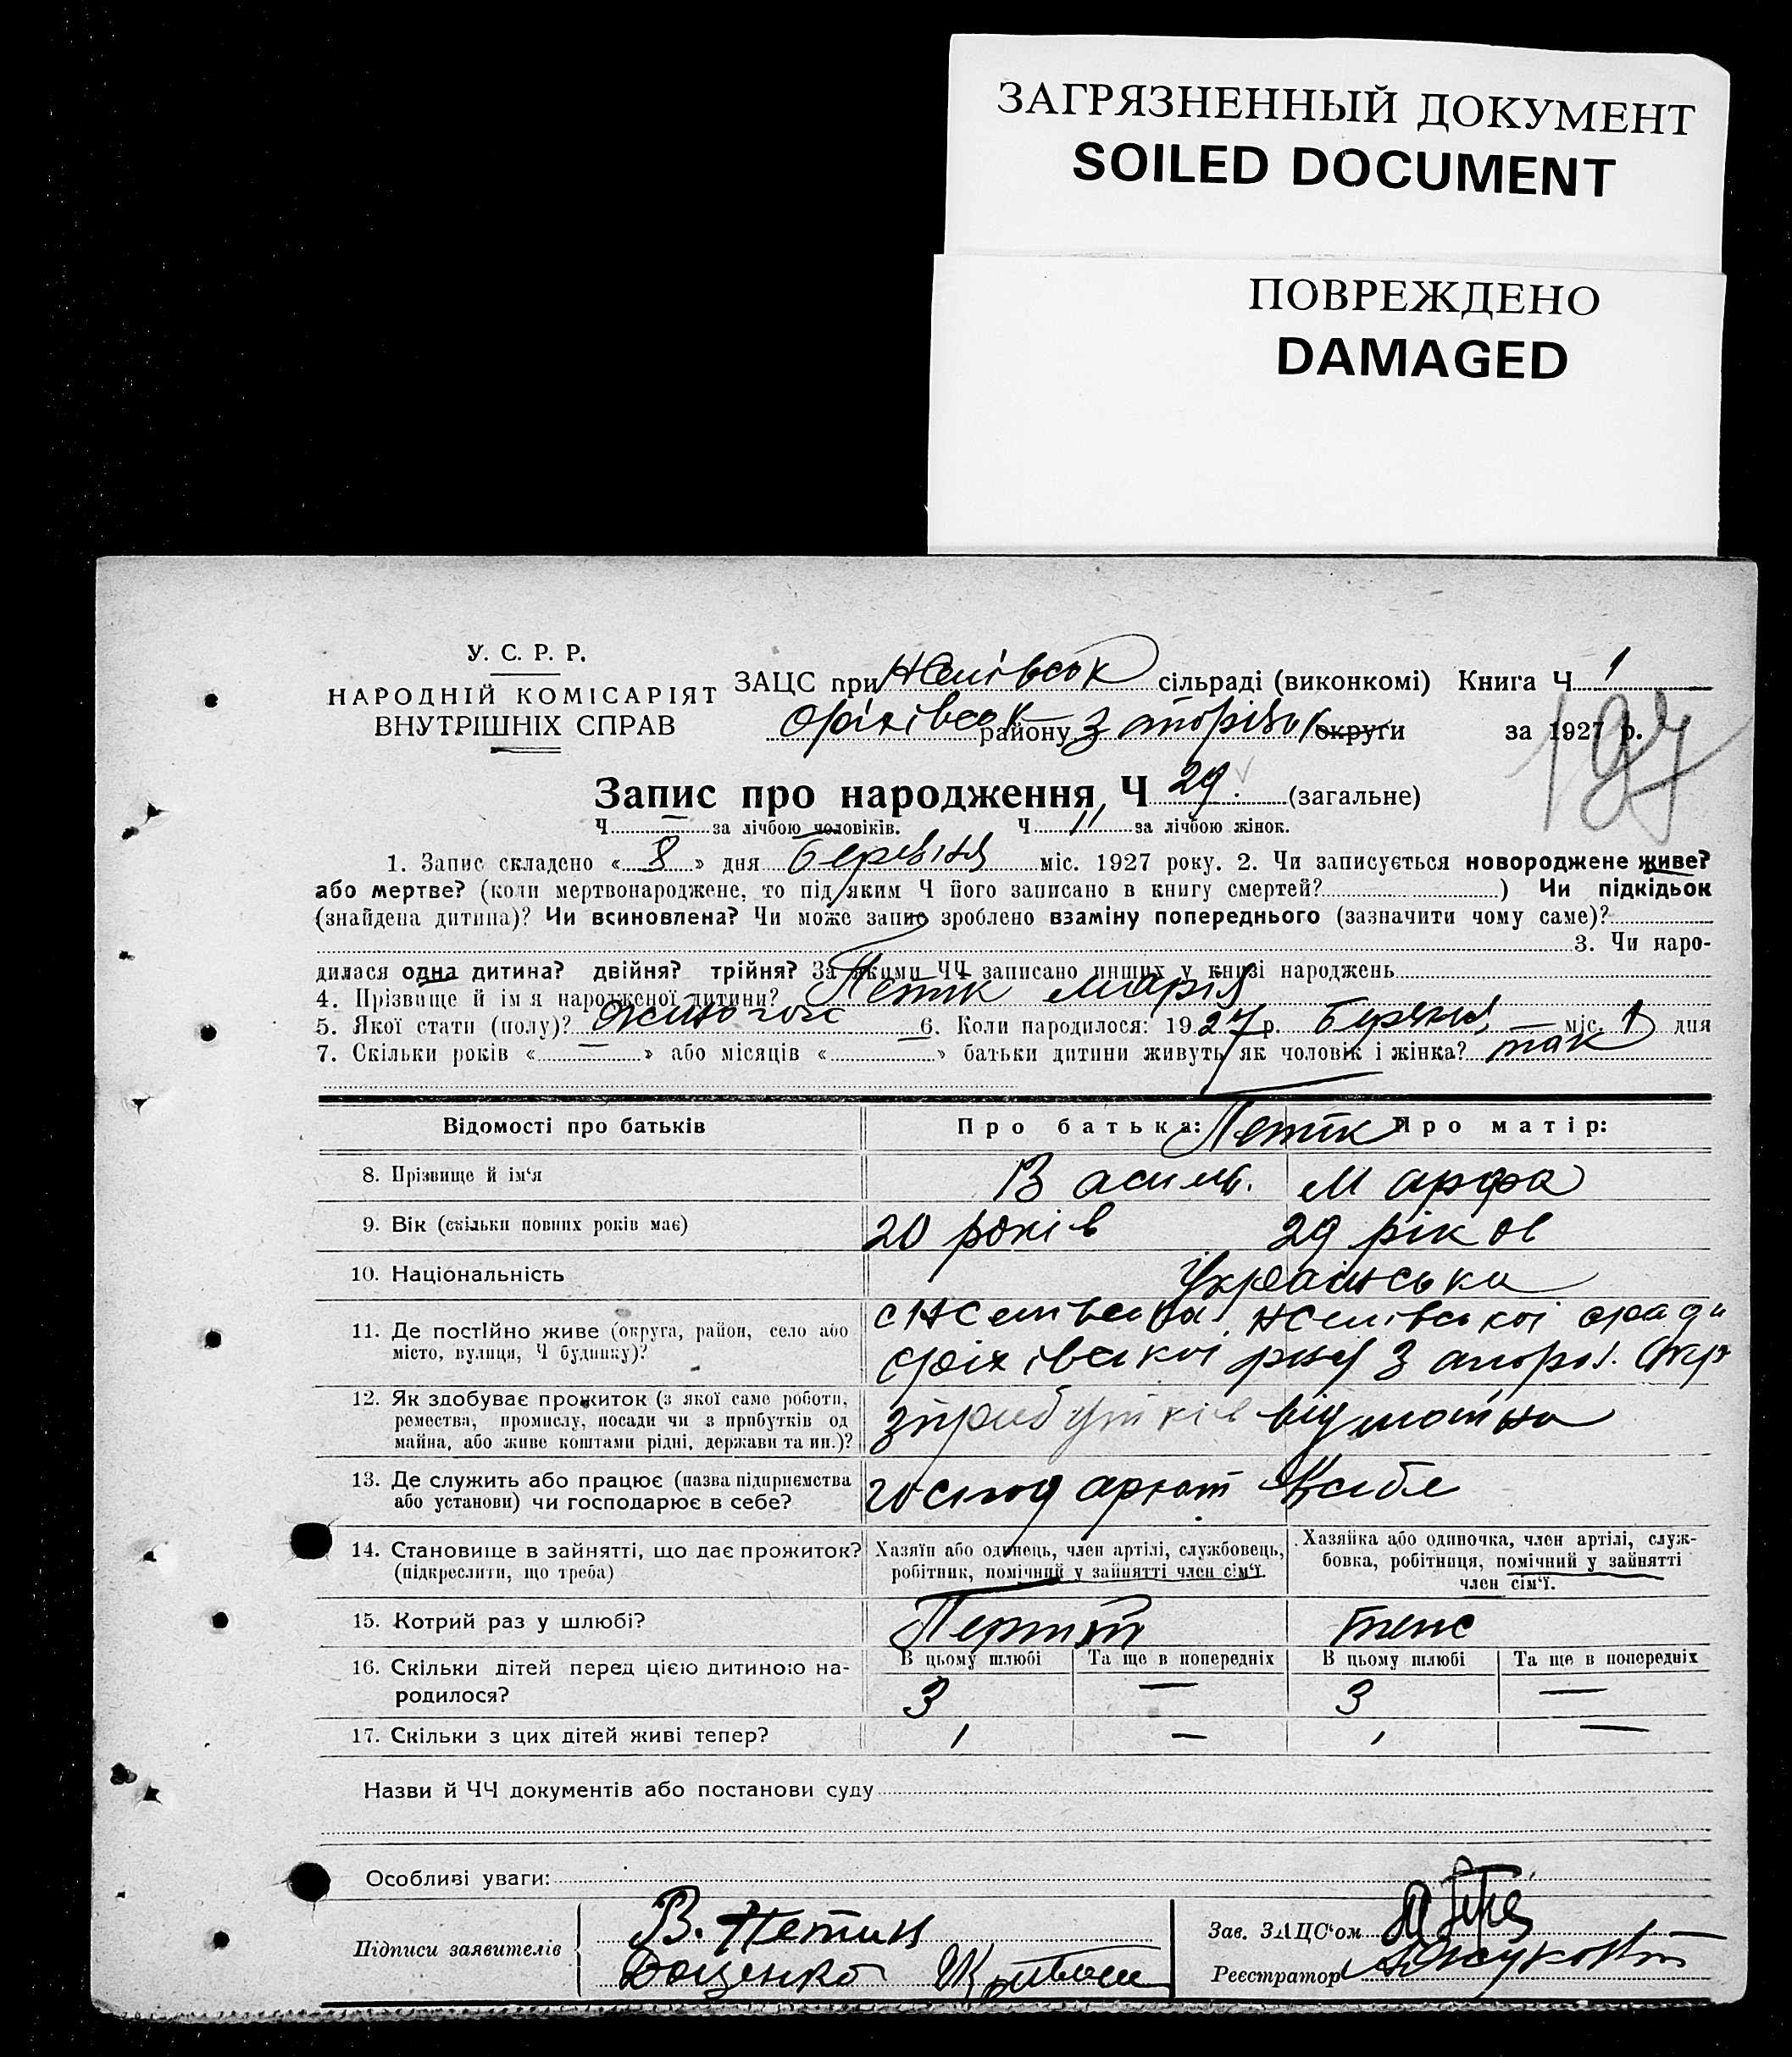 ЗАГРЯЗНЕННЫЙ ДОКУМЕНТ
SOILED DOCUMENT
ПОВРЕЖДЕНО
DAMAGED
У. С. Р. Р.
НАРОДНІЙ КОМІСАРІЯТ
ВНУТРІШНІХ СПРАВ
ЗАЦС при сільраді (виконкомі) Книга Ч 1
Оріхівськ району Запоріз округи за 1927 р.
197
Запис про народження Ч 29. (загальне)
Ч — за лічбою чоловіків. Ч 11 за лічбою жінок.
1. Запис складено « 8 » дня Березіня міс. 1927 року. 2. Чи записується новороджене живе?
або мертве? (коли мертвонароджене, то під яким Ч його записано в книгу смертей? ) Чи підкідьок
(знайдена дитина)? Чи всиновлена? Чи може запис зроблено взаміну попереднього (зазначити чому саме)?
3. Чи наро-
дилася одна дитина? двійня? трійня? За якими ЧЧ записано инших у книзі народжень
4. Прізвище й ім я народженої дитини? Петік Марія
5. Якої стати (полу)? 6. Коли народилося: 1927 р. — міс. 1 дня
7. Скільки років « — » або місяців « — » батьки дитини живуть як чоловік і жінка? так
Відомості про батьків Про батька: Петік Про матір:
8. Прізвище й ім'я Василь. Марфа
9. Вік (скільки повних років має) 20 років 29 років
10. Національність Українська
11. Де постійно живе (округа, район, село або
місто, вулиця, Ч будинку)?
12. Як здобуває прожиток (з якої саме роботи,
ремества, промислу, посади чи з прибутків од
майна, або живе коштами рідні, держави та ин.)? з прибутків від майна
13. Де служить або працює (назва підприємства
або установи) чи господарює в себе? господарют в себе
14. Становище в зайнятті, що дає прожиток?
(підкреслити, що треба)
Хазяїн або одинець, член артілі, службовець,
робітник, помічний у зайнятті член сім'ї.
Хазяйка або одиночка, член артілі, служ-
бовка, робітниця, помічний у зайнятті
член сім'ї.
15. Котрий раз у шлюбі? теж
16. Скільки дітей перед цією дитиною на-
родилося?
В цьому шлюбі Та ще в попередніх В цьому шлюбі Та ще в попередніх
3 — 3 —
17. Скільки з цих дітей живі тепер? 1 — 1 —
Назви й ЧЧ документів або постанови суду
Особливі уваги:
Підписи заявителів В. Петик
Доценко
Зав. ЗАЦС'ом
Реєстратор